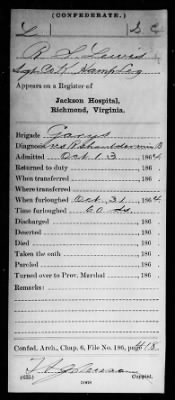 (CONFEDERATE.)
L S. C.
R. S. Lewis
Sgt Co K Hamp Leg
Appears on a Register of
Jackson Hospital,
Richmond, Virginia.
Brigade Garys
Diagnosis
Admitted Oct 13, 1864
Returned to duty, 186
When transferred, 186
Where transferred
When furloughed Oct 31, 1864.
Time furloughed 60 ds
Discharged, 186
Deserted, 186
Died, 186
Taken the oath, 186
Paroled, 186
Turned over to Prov. Marshal, 186
Remarks:
Confed. Arch., Chap. 6, File No. 186, page 418
Copyist.